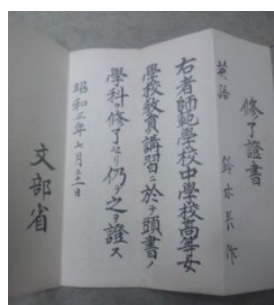 修了證書
英語　鈴木長作
右者師範學校中學校高等女
學校教員講習ニ於テ頭書ノ
學科ヲ修了セリ仍テ之ヲ證ス
昭和三年七月三十一日
文部省